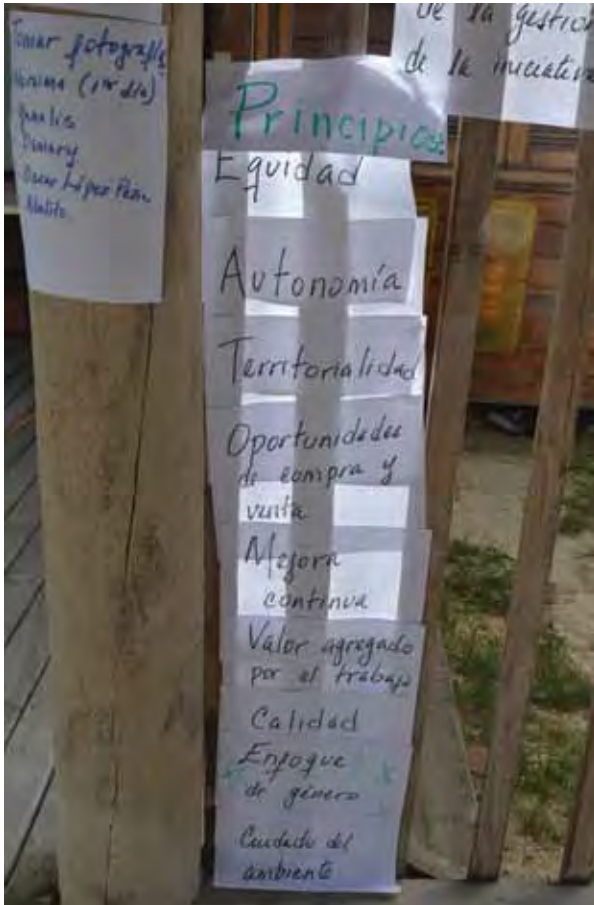 Tomar fotografía
(1er día)
Oscar López
de la gestión
de la iniciativa
Principios:
Equidad
Autonomía
Territorialidad
Oportunidades
de compra y
venta
Mejora
continua
Valor agregado
por el trabajo
Calidad
Enfoque
de género
Cuidado del
ambiente